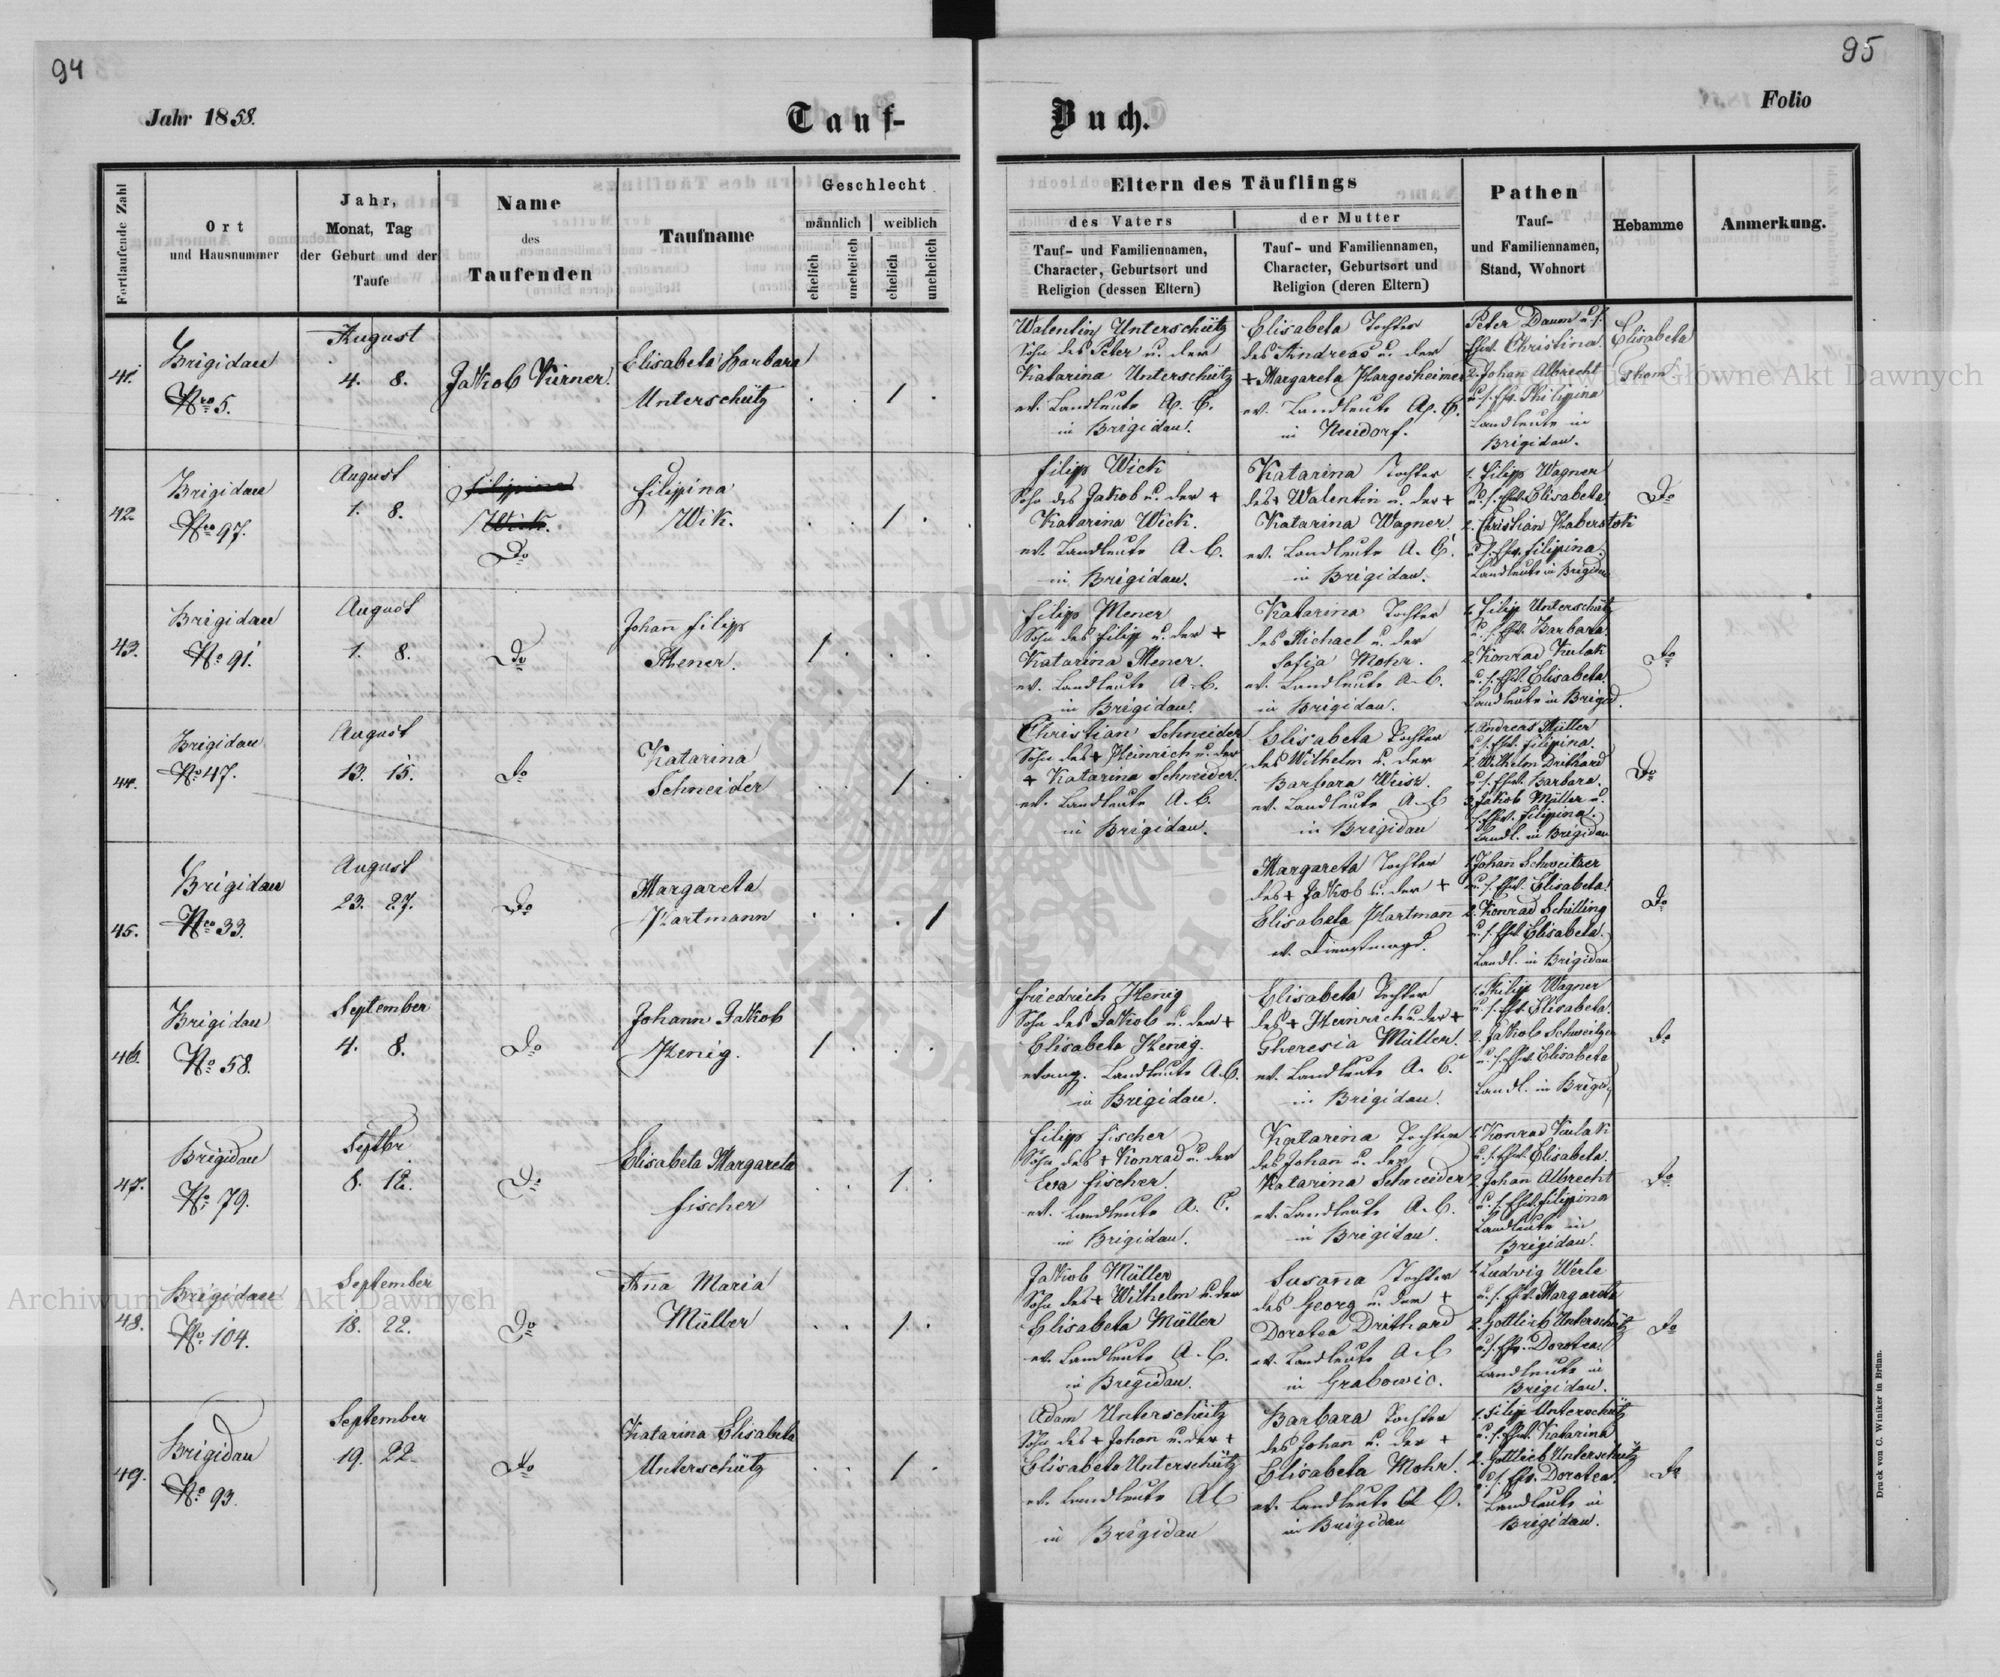 94
95
Jahr 1858.
Tauf-
Buch.
Folio
Fortlaufende Zahl
Ort
und Hausnummer
Jahr,
Monat, Tag
der Geburt und der
Taufe
Name
des
Taufenden
Taufname
Geschlecht
männlich
weiblich
ehelich
unehelich
ehelich
unehelich
Eltern des Täuflings
des Vaters
der Mutter
Tauf- und Familiennamen,
Character, Geburtsort und
Religion (dessen Eltern)
Tauf- und Familiennamen,
Character, Geburtsort und
Religion (deren Eltern)
Pathen
Tauf-
und Familiennamen,
Stand, Wohnort
Hebamme
Anmerkung.
41.
Brigidau
Nro 5.
August
4. 8.
Jakob Kirner.
Elisabeta Barbara
Unterschütz
1
Walentin Unterschütz
Sohn des Peter u. der
Katarina Unterschütz
ev. Landleute A. C.
in Brigidau.
Elisabeta Tochter
des Andreas u. der
+ Margareta Hargesheimer
ev. Landleute A. C.
in Neudorf.
Peter Daum u. s.
Ehw. Christina.
2. Johan Albrecht
u. s. Ehw. Philippina
Landleute in
Brigidau.
Elisabeta
42.
Brigidau
Nro 97.
August
1. 8.
Filippina
Wick.
Do
Filipina
Wik.
1
Filipp Wick
Sohn des Jakob u. der +
Katarina Wick.
ev. Landleute A. C.
in Brigidau.
Katarina Tochter
des + Walentin u. der +
Katarina Wagner.
ev. Landleute A. C.
in Brigidau.
1. Filipp Wagner
u. s. Ehw. Elisabeta
2. Christian Haberstok
u. s. Ehw. Filipina.
Landleute in Brigidau
Do
43.
Brigidau
No 91.
August
1. 8.
Do
Johañ Filipp
Mener.
1
Filipp Mener
Sohn des Filipp u. der +
Katarina Mener.
ev. Landleute A. C.
in Brigidau.
Katarina Tochter
des Michael u. der
Sofia Mohr.
ev. Landleute A. C.
in Brigidau.
1. Filipp Unterschütz
u. s. Ehw. Barbara.
2. Konrad Kulak
u. s. Ehw. Elisabeta.
Landleute in Brigid.
Do
44.
Brigidau
No 47.
August
13. 15.
Do
Katarina
Schneider
1
Christian Schneider
Sohn des + Heinrich u. der
+ Katarina Schneider.
ev. Landleute A. C.
in Brigidau.
Elisabeta Tochter
des Wilhelm u. der
Barbara Weisz.
ev. Landleute A. C
in Brigidau
1. Andreas Müller
u. s. Ehw. Filipina.
2. Wilhelm Drithard
u. s. Ehw. Barbara.
3. Jakob Müller u.
s. Ehw. Filipina.
Landl. in Brigidau
Do
45.
Brigidau
Nro 33.
August
23. 27.
Do
Margareta
Hartmann
1
Margareta Tochter
des + Jakob u. der +
Elisabeta Hartmañ
ev. Dienstmagd.
1. Johan Schweitzer
u. s. Ehw. Elisabeta.
2. Konrad Schilling
u. s. Ehw. Elisabeta.
Landl. in Brigidau
Do
46.
Brigidau
No 58.
September
4. 8.
Do
Johann Jakob
Henig.
1
Friedrich Henig
Sohn des Jakob u. der +
Elisabeta Henig.
evang. Landleute A. C.
in Brigidau.
Elisabeta Tochter
des + Heinrich u. der +
Theresia Müller.
ev. Landleute A. C.
in Brigidau.
1. Philip Wagner
u. s. Ehw. Elisabeta.
2. Jakob Schweitzer
u. s. Ehw. Elisabeta
Landl. in Brigid.
Do
47.
Brigidau
No 79.
Septbr.
8. 12.
Do
Elisabeta Margareta
Fischer
1
Filipp Fischer
Sohn des + Konrad u. der
Eva Fischer.
ev. Landleute A. C.
in Brigidau.
Katarina Tochter
des Johañ u. der
Katarina Schneider
ev. Landleute A. C.
in Brigidau.
1. Konrad Kulak
u. s. Ehw. Elisabeta.
2. Johañ Albrecht
u. s. Ehw. Filippina
Landleute in
Brigidau.
Do
48.
Brigidau
No 104.
September
18. 22.
Do
Aña Maria
Müller
1
Jakob Müller
Sohn des + Wilhelm u. der
Elisabeta Müller
ev. Landleute A. C.
in Brigidau.
Susaña Tochter
des Georg u. der +
Dorotea Drithard
ev. Landleute A. C
in Grabowic.
1. Ludwig Werle
u. s. Ehw. Margareta
2. Gottlieb Unterschütz
u. s. Ehw. Dorotea
Landleute in
Brigidau.
Do
49.
Brigidau
No 93.
September
19. 22.
Do
Katarina Elisabeta
Unterschütz
1
Adam Unterschütz
Sohn des + Johan u. der +
Elisabeta Unterschütz
ev. Landleute AC
in Brigidau
Barbara Tochter
des Johañ u. der +
Elisabeta Mohr.
ev. Landleute A C.
in Brigidau
1. Filipp Unterschütz
u. s. Ehw. Katarina
2. Gottlieb Unterschütz
u. s. Ehw. Dorotea.
Landleute in
Brigidau.
Do
Druck von C. Winiker in Brünn.
Archiwum Główne Akt Dawnych
Archiwum Główne Akt Dawnych